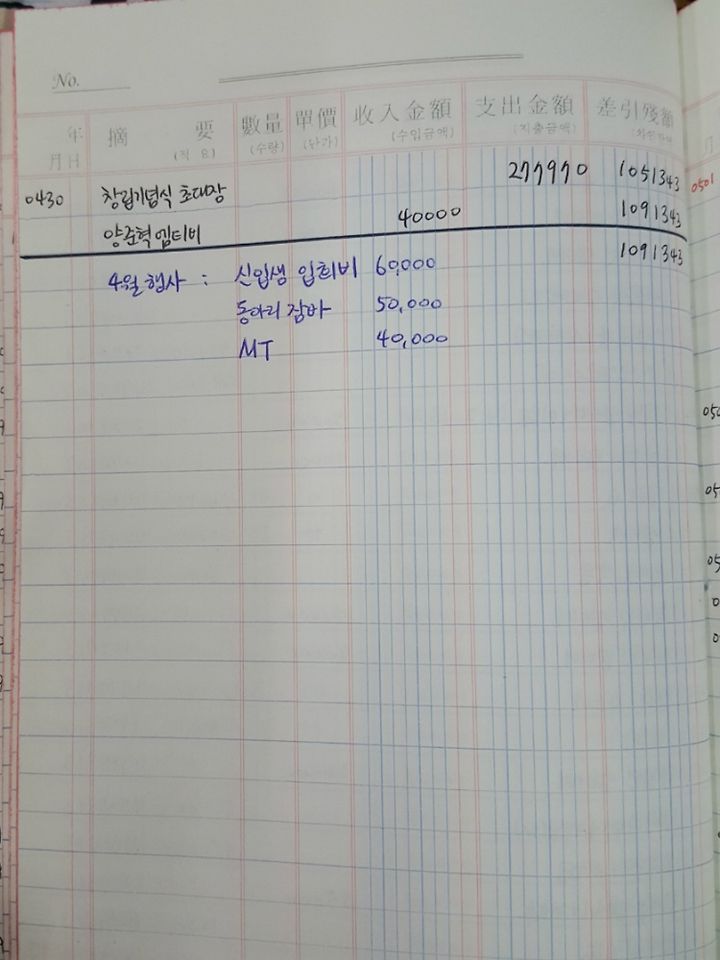 No.
年 摘 要 數量 單價 收入金額 支出金額 差引殘額
月日 (적 요) (수량) (단가) (수입금액) (지출금액)
0430 창립기념식 초대장 277970 1051343
양준혁 엠티비 40000 1091343
1091343
4월 행사 : 신입생 입회비 60,000
동아리 잠바 50,000
MT 40,000
0501